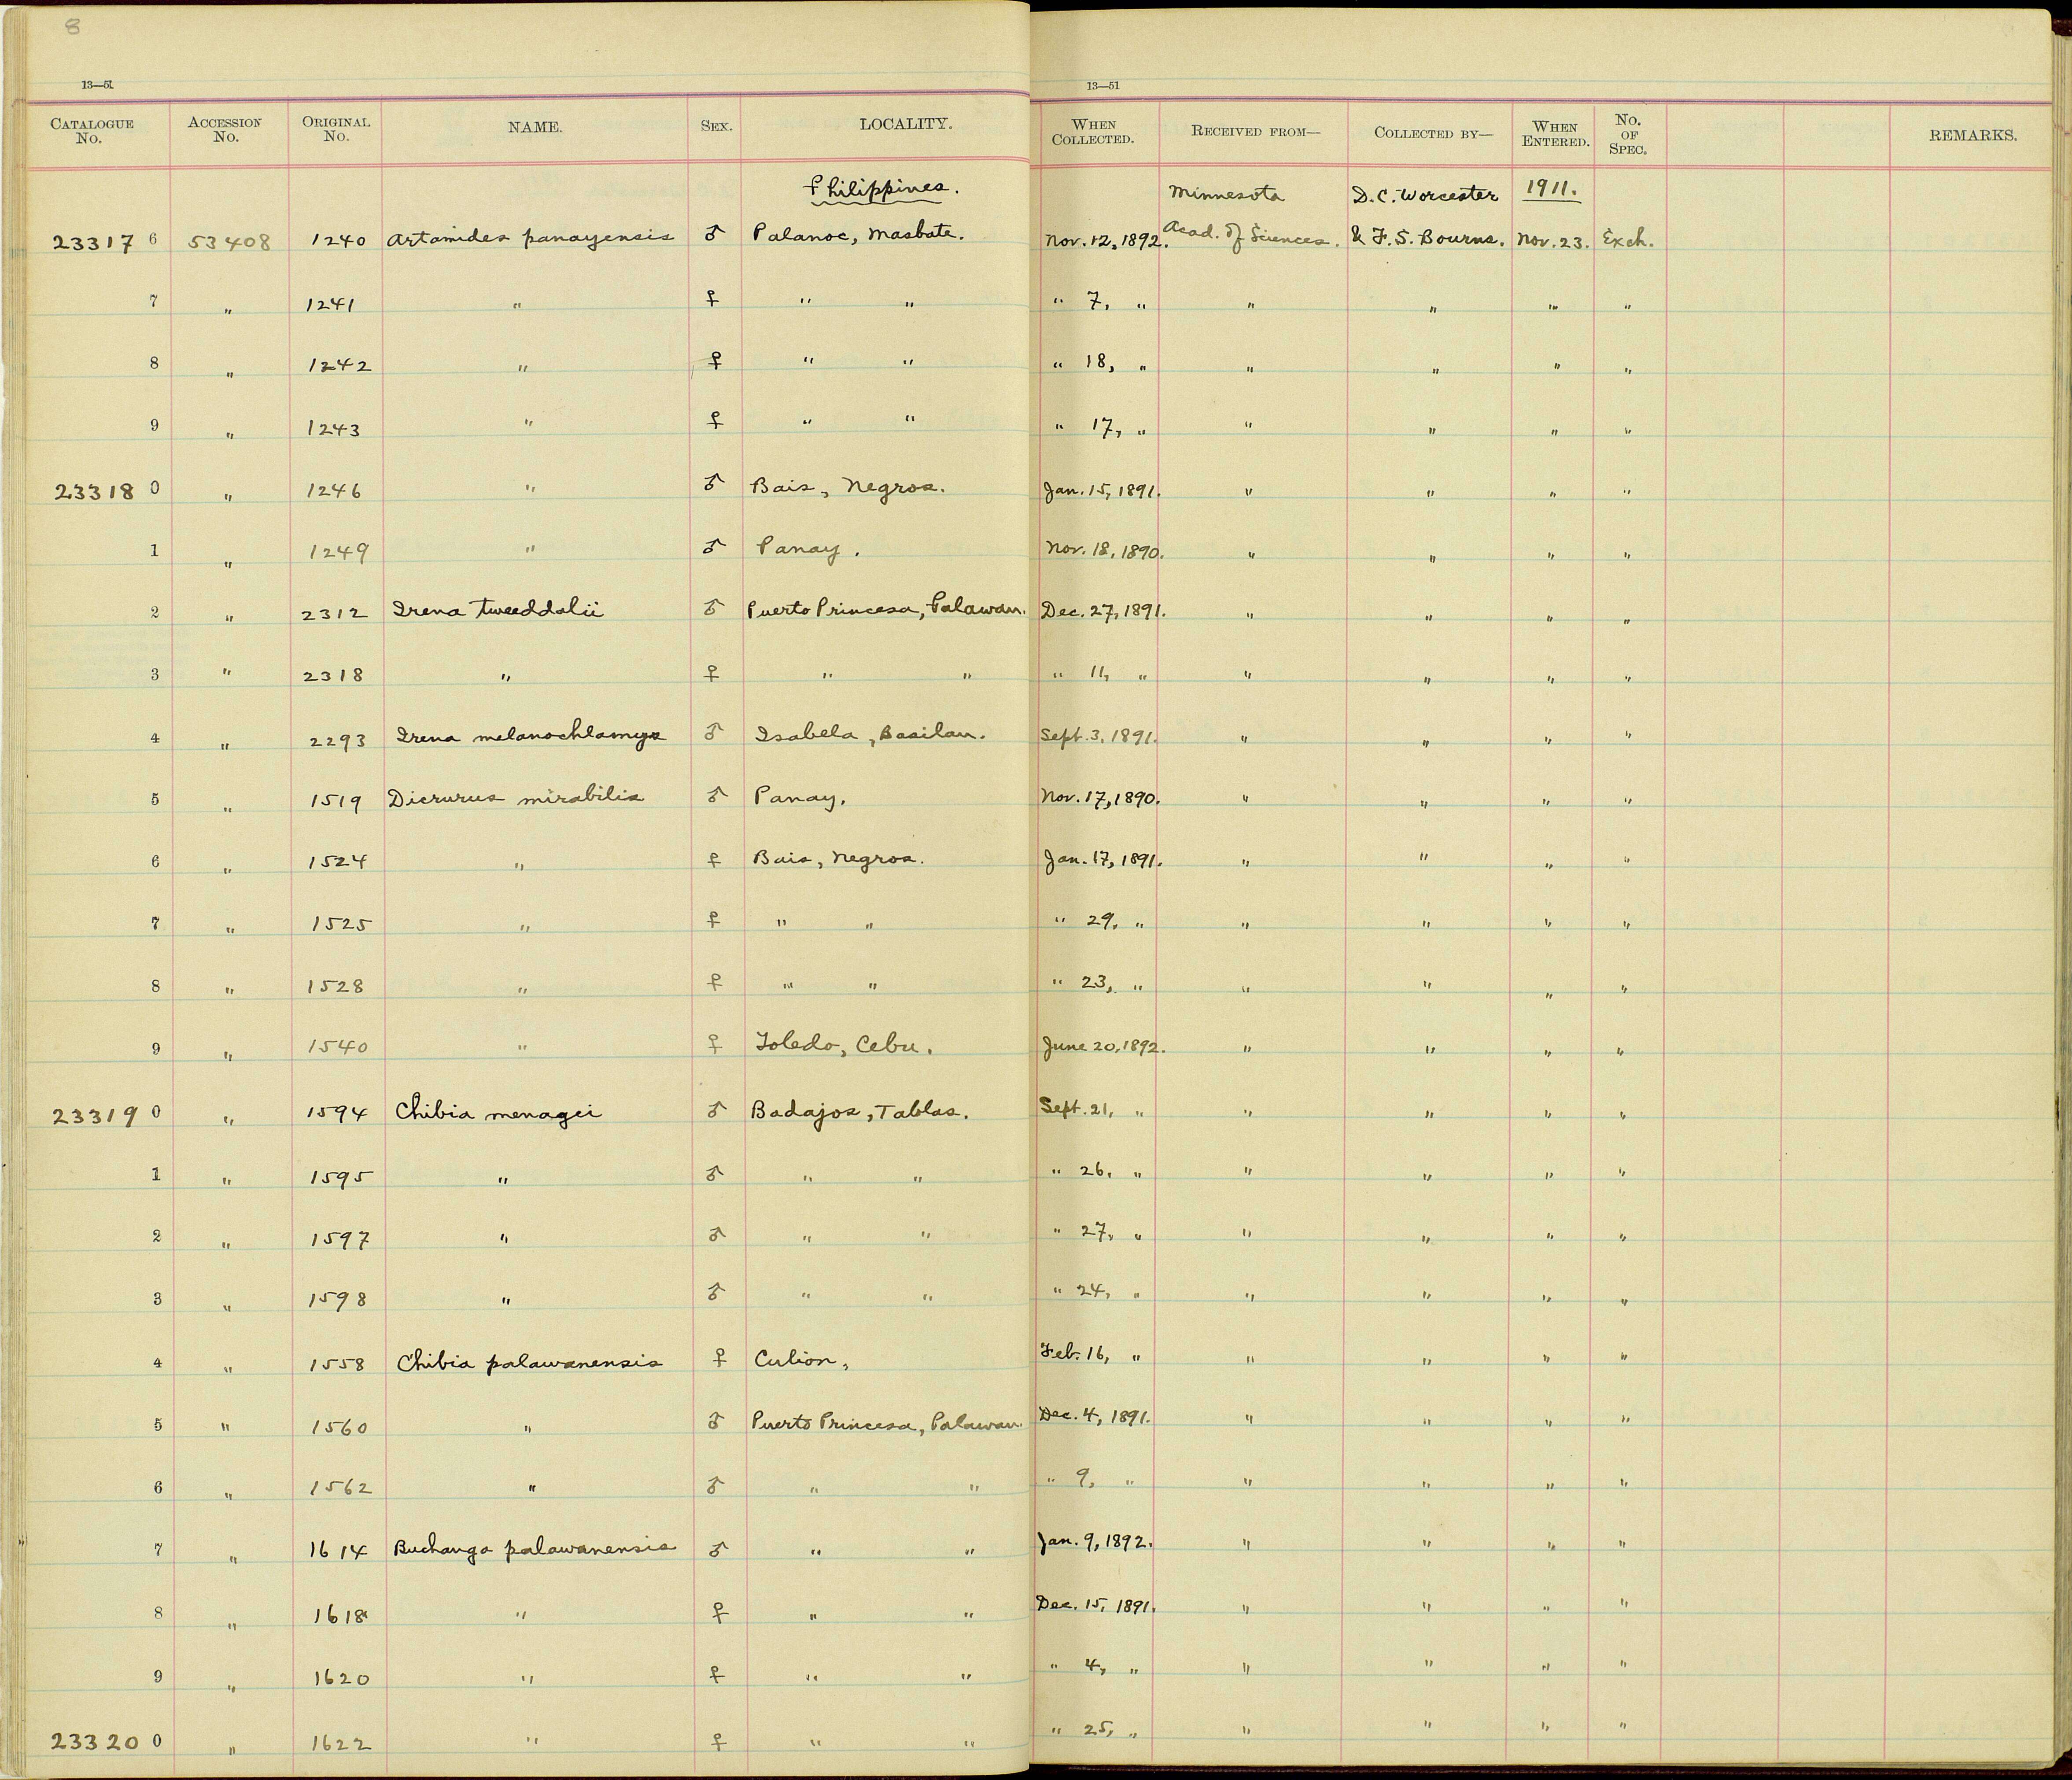 8
13—51 13—51
CATALOGUE No. ACCESSION No. ORIGINAL No. NAME. SEX. LOCALITY. WHEN COLLECTED. RECEIVED FROM— COLLECTED BY— WHEN ENTERED. No. OF SPEC. REMARKS.
Philippines. Minnesota D. C. Worcester 1911.
23317 6 53408 1240 Artamides panayensis ♂ Palanoc, Masbate. Nov. 12, 1892. Acad. of Sciences. & F. S. Bourns. Nov. 23. Exch.
7 " 1241 " ♀ " " " 7, " " " " "
8 " 1242 " ♀ " " " 18, " " " " "
9 " 1243 " ♀ " " " 17, " " " " "
23318 0 " 1246 " ♂ Bais, Negros. Jan. 15, 1891. " " " "
1 " 1249 " ♂ Panay. Nov. 18, 1890. " " " "
2 " 2312 Irena tweeddalii ♂ Puerto Princesa, Palawan. Dec. 27, 1891. " " " "
3 " 2318 " ♀ " " " 11, " " " " "
4 " 2293 Irena melanochlamys ♂ Isabela, Basilan. Sept. 3, 1891. " " " "
5 " 1519 Dicrurus mirabilis ♂ Panay. Nov. 17, 1890. " " " "
6 " 1524 " ♀ Bais, Negros. Jan. 17, 1891. " " " "
7 " 1525 " ♀ " " " 29, " " " " "
8 " 1528 " ♀ " " " 23, " " " " "
9 " 1540 " ♀ Toledo, Cebu. June 20, 1892. " " " "
23319 0 " 1594 Chibia menagei ♂ Badajos, Tablas. Sept. 21, " " " " "
1 " 1595 " ♂ " " " 26, " " " " "
2 " 1597 " ♂ " " " 27, " " " " "
3 " 1598 " ♂ " " " 24, " " " " "
4 " 1558 Chibia palawanensis ♀ Culion, Feb. 16, " " " " "
5 " 1560 " ♂ Puerto Princesa, Palawan. Dec. 4, 1891. " " " "
6 " 1562 " ♂ " " " 9, " " " " "
7 " 1614 Buchanga palawanensis ♂ " " Jan. 9, 1892. " " " "
8 " 1618 " ♀ " " Dec. 15, 1891. " " " "
9 " 1620 " ♀ " " " 4, " " " " "
23320 0 " 1622 " ♀ " " " 25, " " " " "